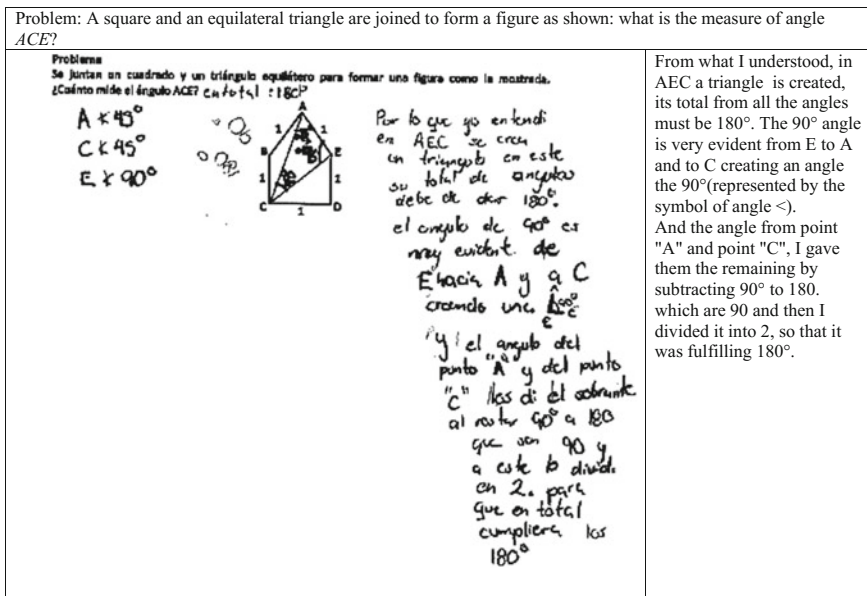 Problem: A square and an equilateral triangle are joined to form a figure as shown: what is the measure of angle
ACE?
Problema
Se juntan un cuadrado y un triángulo equilátero para formar una figura como la mostrada.
¿Cuánto mide el ángulo ACE? en total : 180°
A ∡ 45°
C ∡ 45°
E ∡ 90°
A
1 1
B E
1 1
C D
1
Por lo que yo entendi
en AEC se crea
un triangulo en este
su total de angulos
debe de dar 180°.
el angulo de 90° es
muy evident. de
E hacia A y a C
creando una
y el angulo del
punto "A" y del punto
"C" les di el sobrante
al restar 90° a 180
que son 90 y
a este lo dividi
en 2. para
que en total
cumpliera los
180°
From what I understood, in
AEC a triangle is created,
its total from all the angles
must be 180°. The 90° angle
is very evident from E to A
and to C creating an angle
the 90°(represented by the
symbol of angle <).
And the angle from point
"A" and point "C", I gave
them the remaining by
subtracting 90° to 180.
which are 90 and then I
divided it into 2, so that it
was fulfilling 180°.